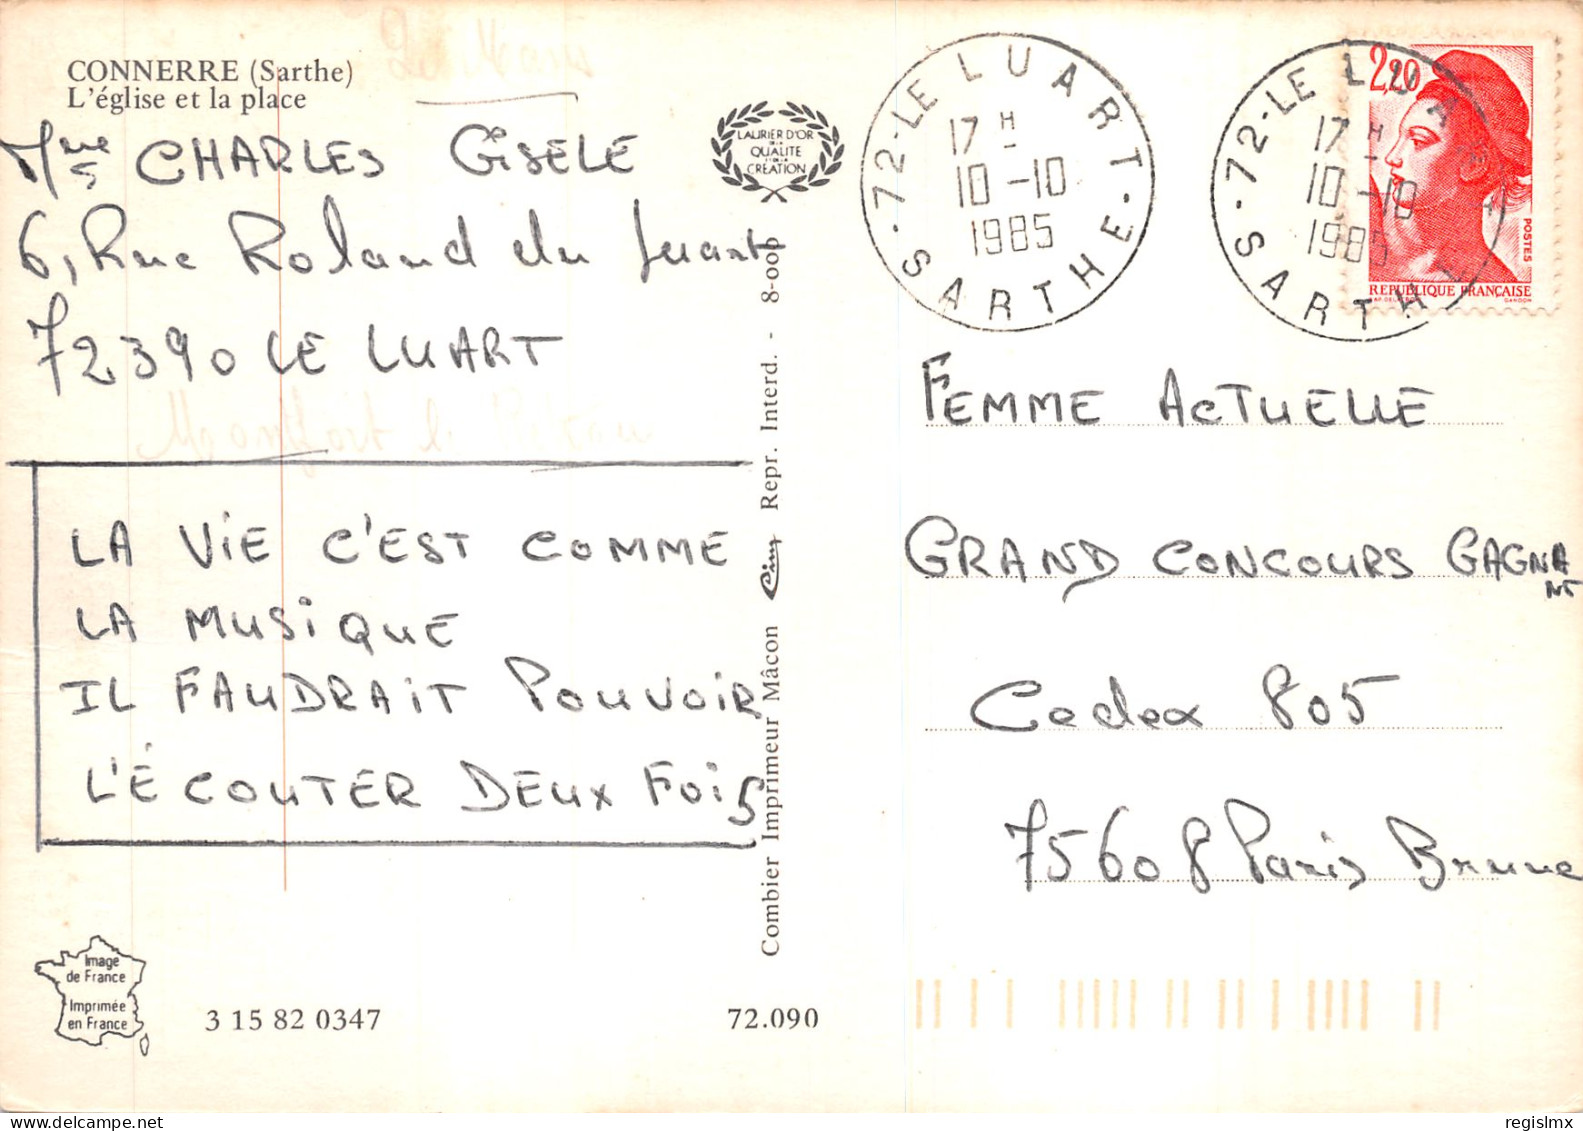 CONNERRE (Sarthe)
L'église et la place
Mme CHARLES GISELE
6, Rue Roland du Luart
72390 LE LUART
LA VIE C'EST COMME
LA MUSIQUE
IL FAUDRAIT POUVOIR
L'ÉCOUTER DEUX FOIS
Image
de France
Imprimée
en France
3 15 82 0347
72.090
LAURIER D'OR
DE LA
QUALITE
ET DE LA
CREATION
Combier Imprimeur Mâcon Cim Repr. Interd. - 8-000
72-LE LUART-SARTHE-
17 H
10-10
1985
72-LE LUART
SARTHE
17 H
10-10
1985
2,20
POSTES
REPUBLIQUE FRANÇAISE
GANDON
FEMME ACTUELLE
GRAND CONCOURS GAGNA
NT
Cedex 805
75608 Paris Brune
regislmx